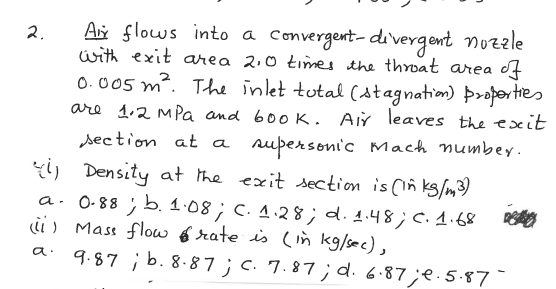 2. Air flows into a convergent-divergent nozzle
with exit area 2.0 times the throat area of
0.005 m². The inlet total (stagnation) properties
are 1.2 MPa and 600K. Air leaves the exit
section at a supersonic Mach number.
i) Density at the exit section is (in kg/m³)
a. 0.88 ; b. 1.08 ; c. 1.28 ; d. 1.48 ; c. 1.68
(ii) Mass flow rate is (in kg/sec),
a. 9.87 ; b. 8.87 ; c. 7.87 ; d. 6.87 ; e. 5.87 -